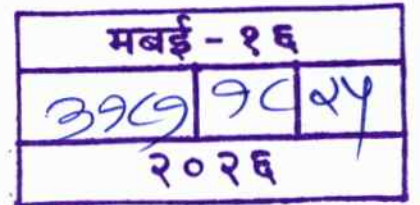 मबई - १६
३१८७ १८ २५
२०२६